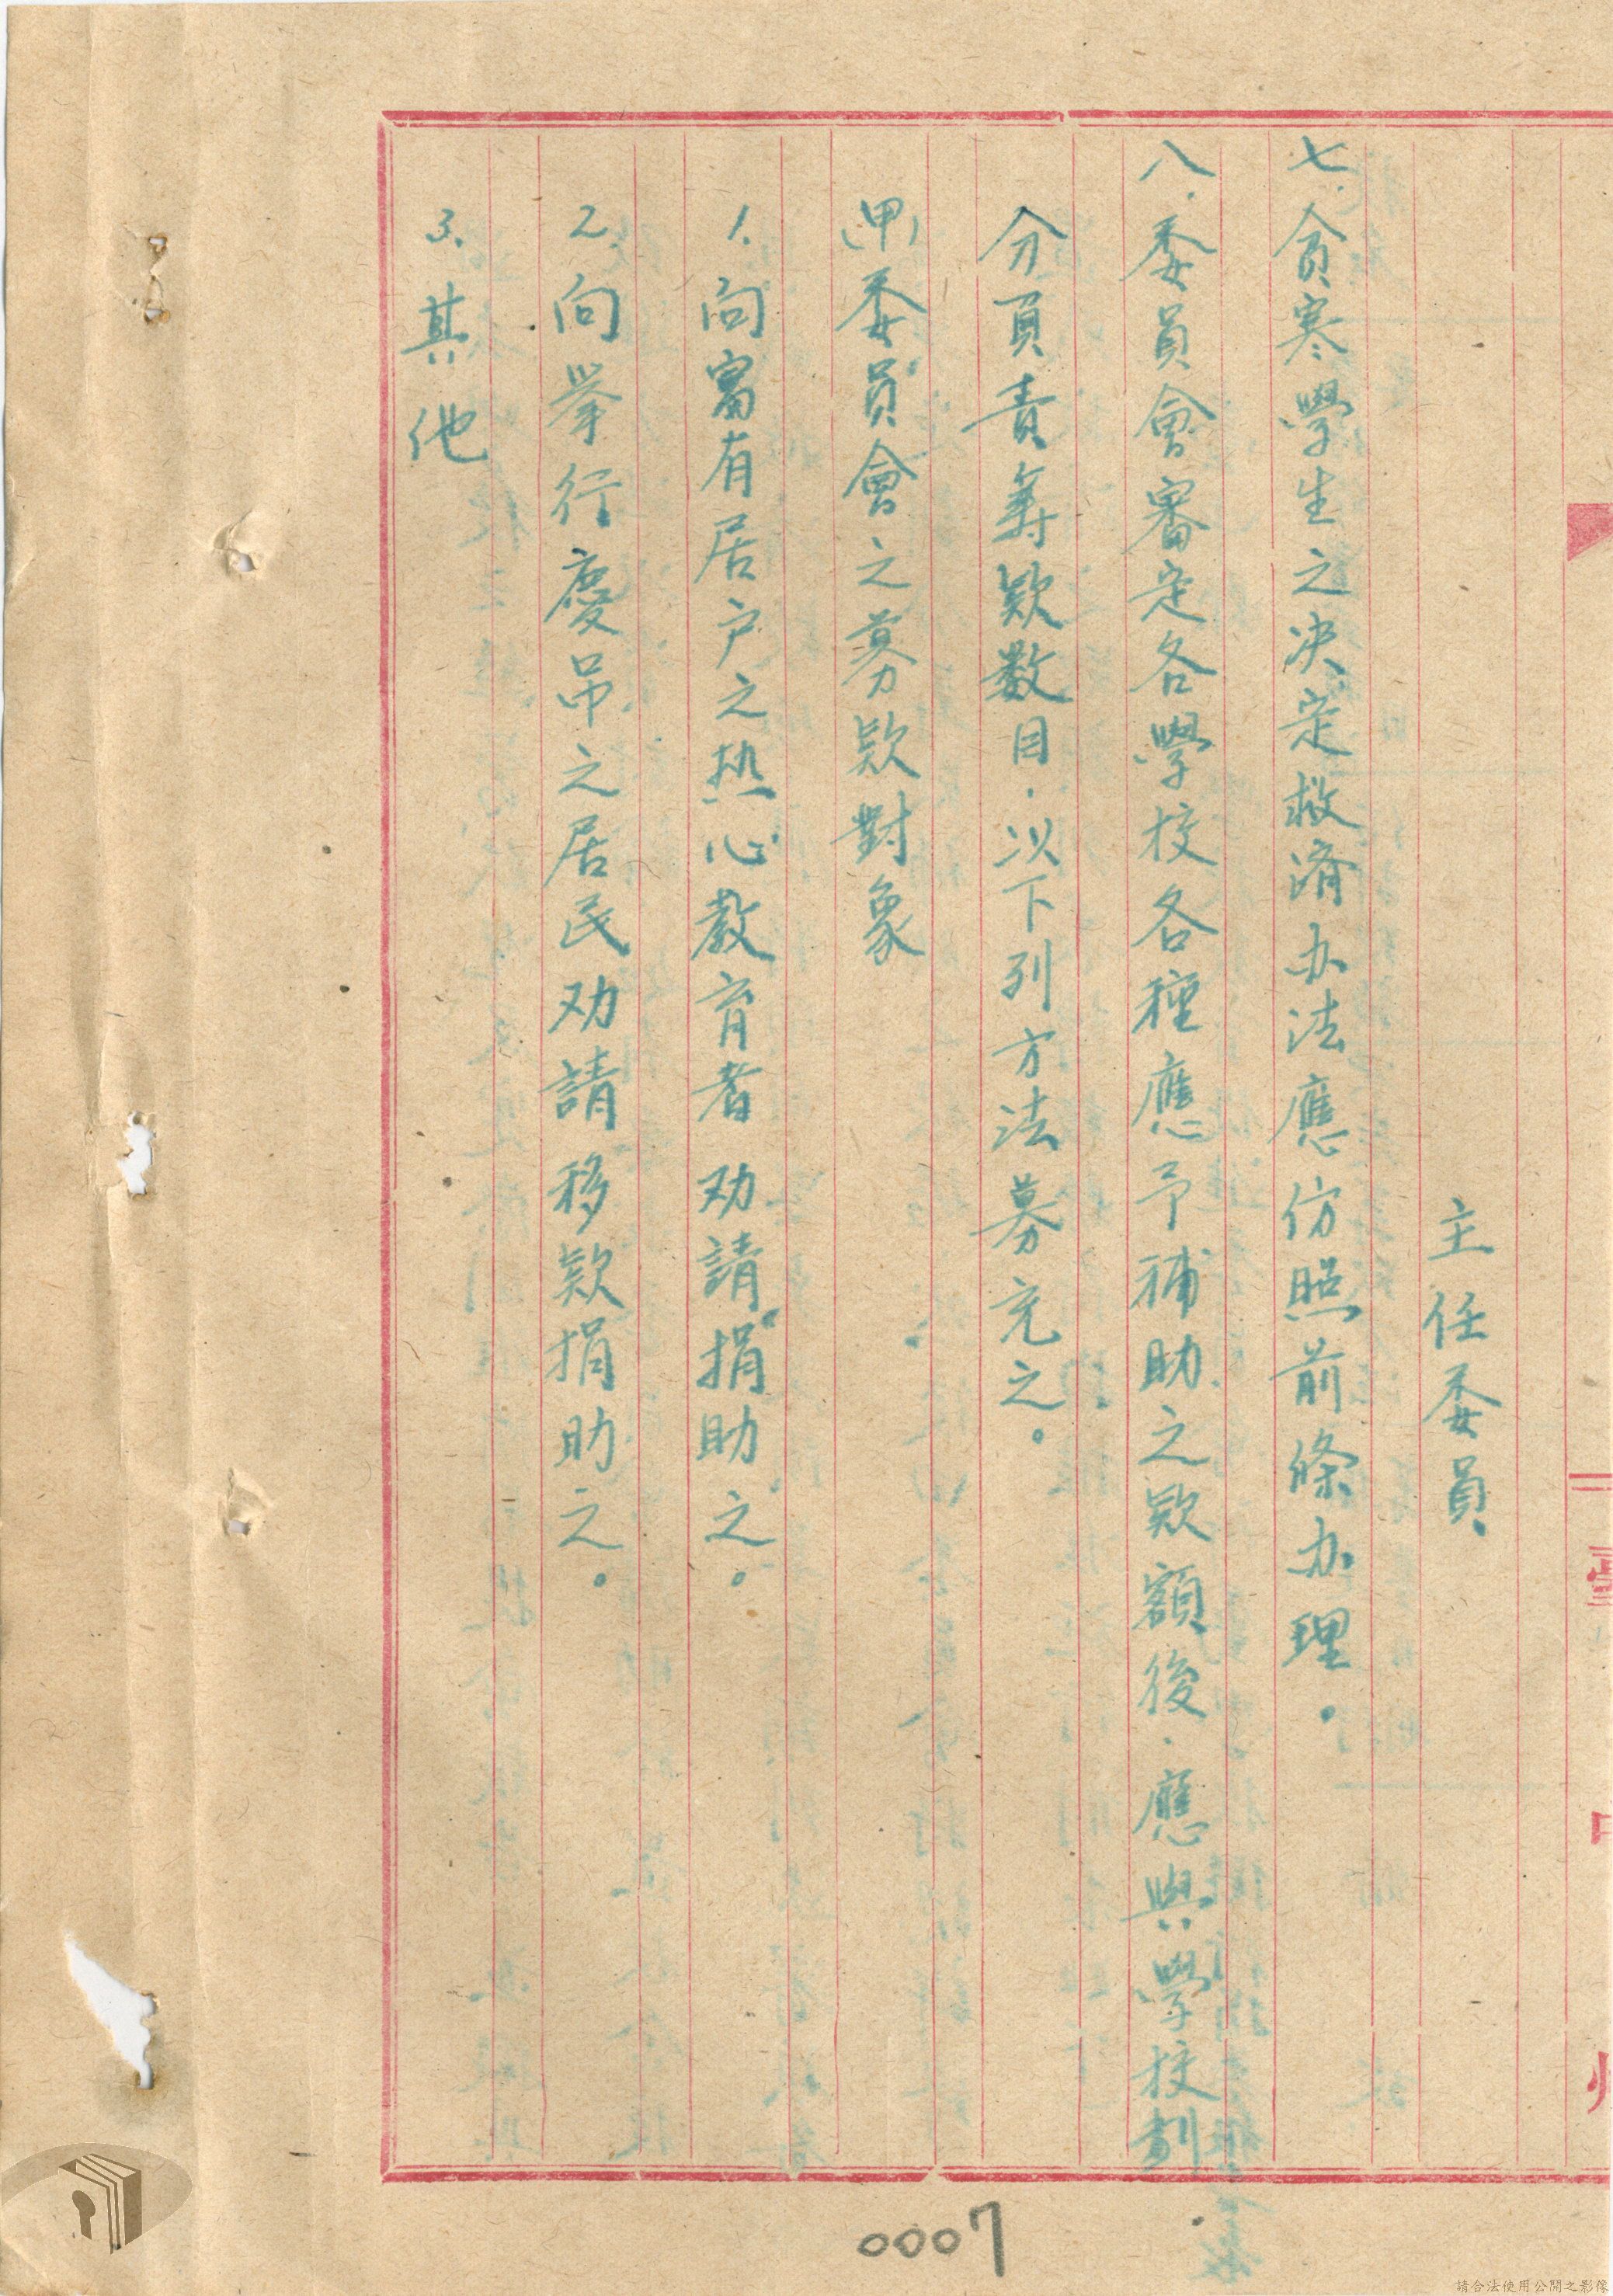 主任委員
七.貧寒學生之决定救濟办法應仿照前條办理。
八.委員會審定各學校各種應予補助之欵額後.應與學校劃
分負責籌欵数目.以下列方法募充之。
(甲)委員會之募欵對象
1.向富有居户之热心教育者劝請捐助之。
2.向举行慶吊之居民劝請移欵捐助之。
3.其他
0007
請合法使用公開之影像